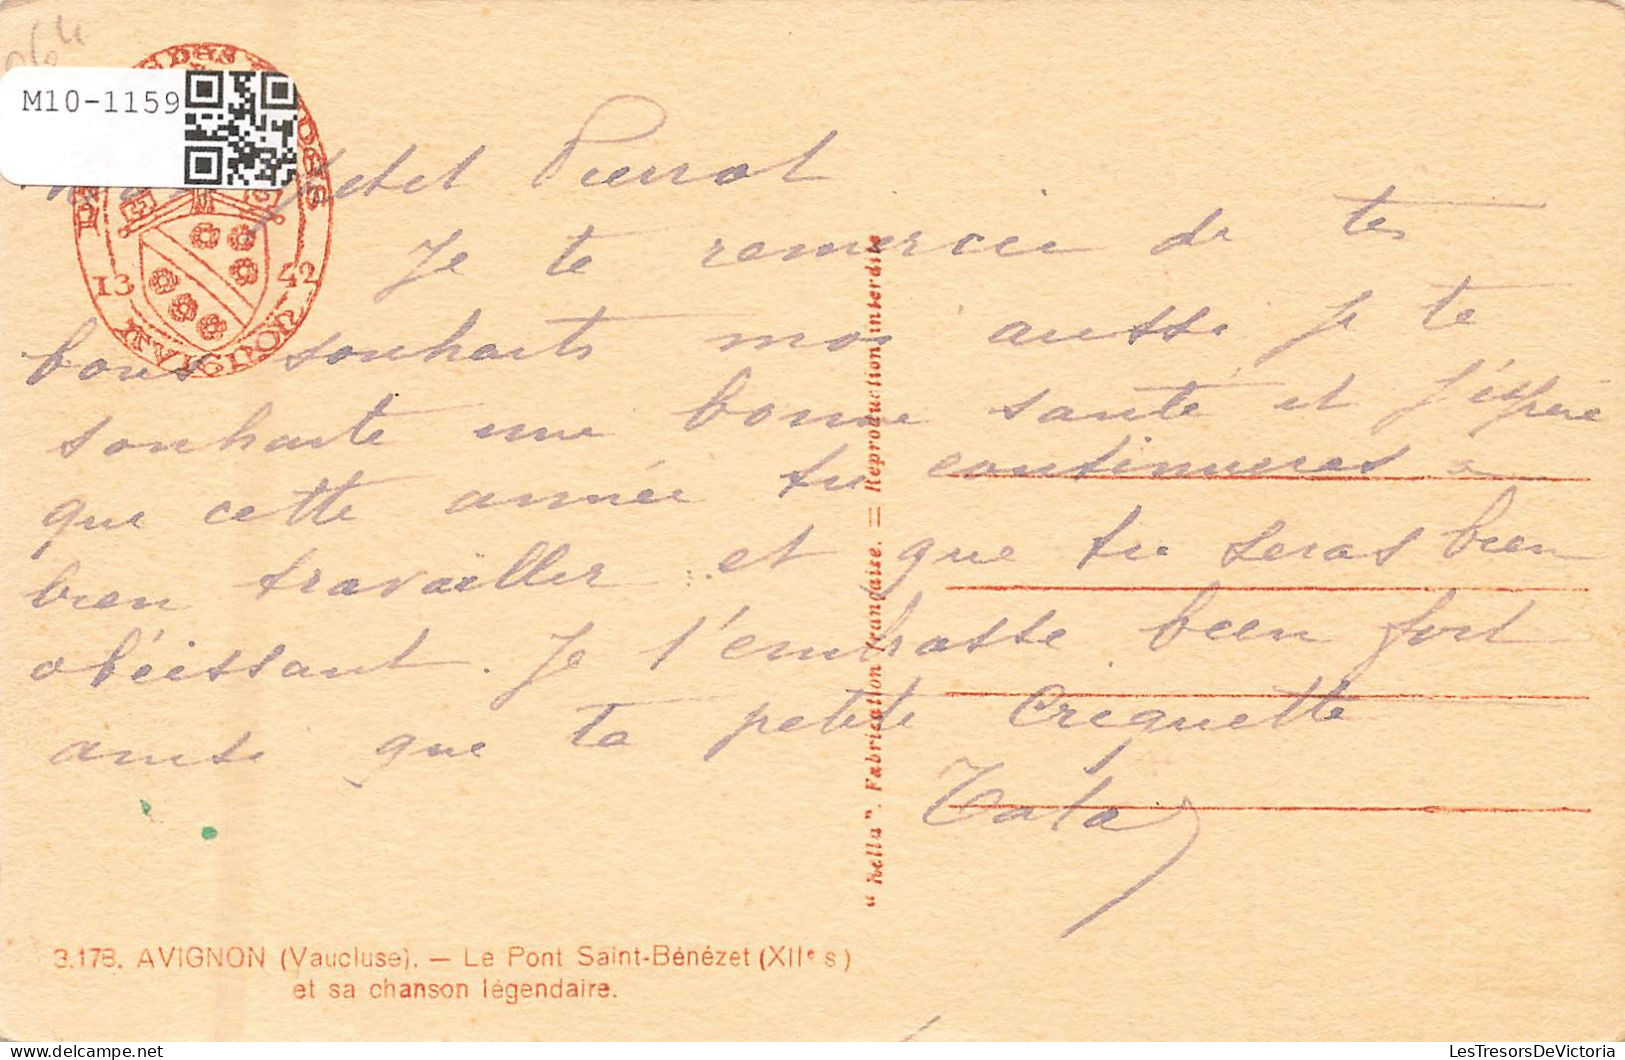 M10-1159
Petit Pierrot
Je te remercie de tes
bons souhaits moi aussi je te
souhaite une bonne santé et j'éspère
que cette année tu continueras à
bien travailler et que tu seras bien
obéissant. Je t'embrasse bien fort
ainsi que ta petite Criquette
Tata
13 42
AVIGNON
"Rella". Fabrication française. = Reproduction interdite
3.178. AVIGNON (Vaucluse). — Le Pont Saint-Bénézet (XIIe s)
et sa chanson légendaire.
LesTresorsDeVictoria